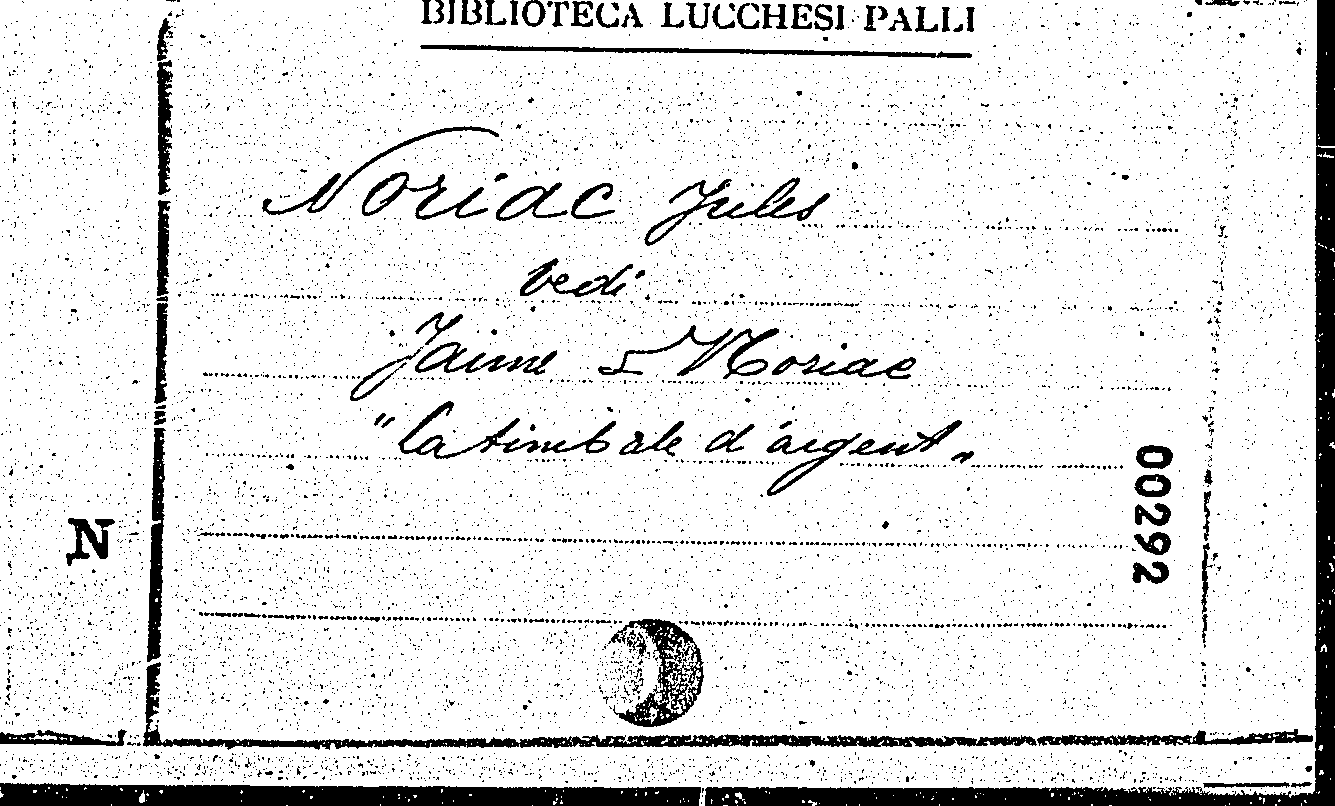 BIBLIOTECA LUCCHESI PALLI
Noriac Jules
vedi
Jaime & Noriac
"La timbale d'argent„
N
00292